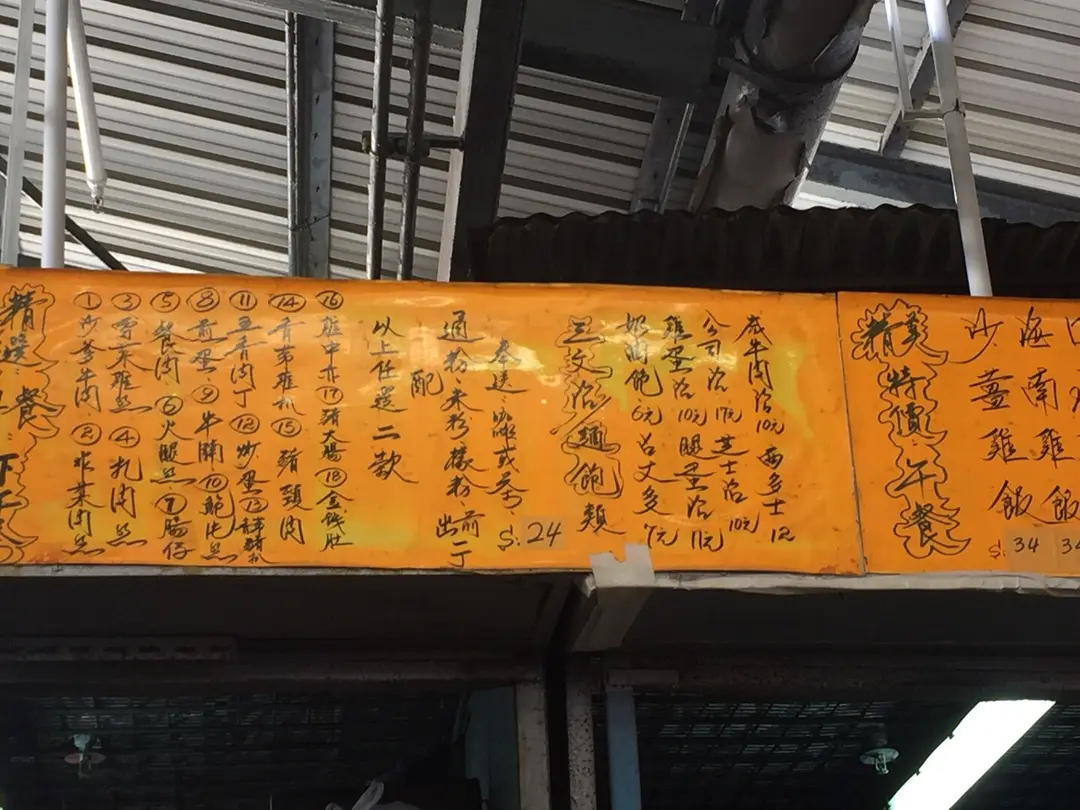 精選餐
下午
①沙爹牛肉②榨菜肉絲
③雪菜雞絲④扎肉絲
⑤餐肉⑥火腿絲⑦腸仔
⑧煎蛋⑨牛腩⑩鮑片絲
⑪五香肉丁⑫炒蛋⑬
⑭香茅雞扒⑮豬頸肉
⑯ ⑰豬大腸⑱金錢肚
以上任選二款
配
通粉·米粉·檬粉·出前一丁
奉送
S:24
三文治麵飽類
奶油飽6元呂文多7元
雞蛋治10元腿蛋治11元
公司治17元芝士治10元
咸牛肉治10元西多士12
精美特價午餐
沙薑雞飯
S:34
海南雞飯